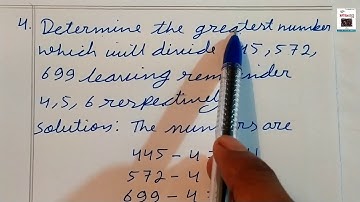 4. Determine the greatest number
which will divide 445, 572,
699 leaving remainder
4, 5, 6 respectively
Solution: The numbers are
445 - 4 =
572 - 4
699 - 4